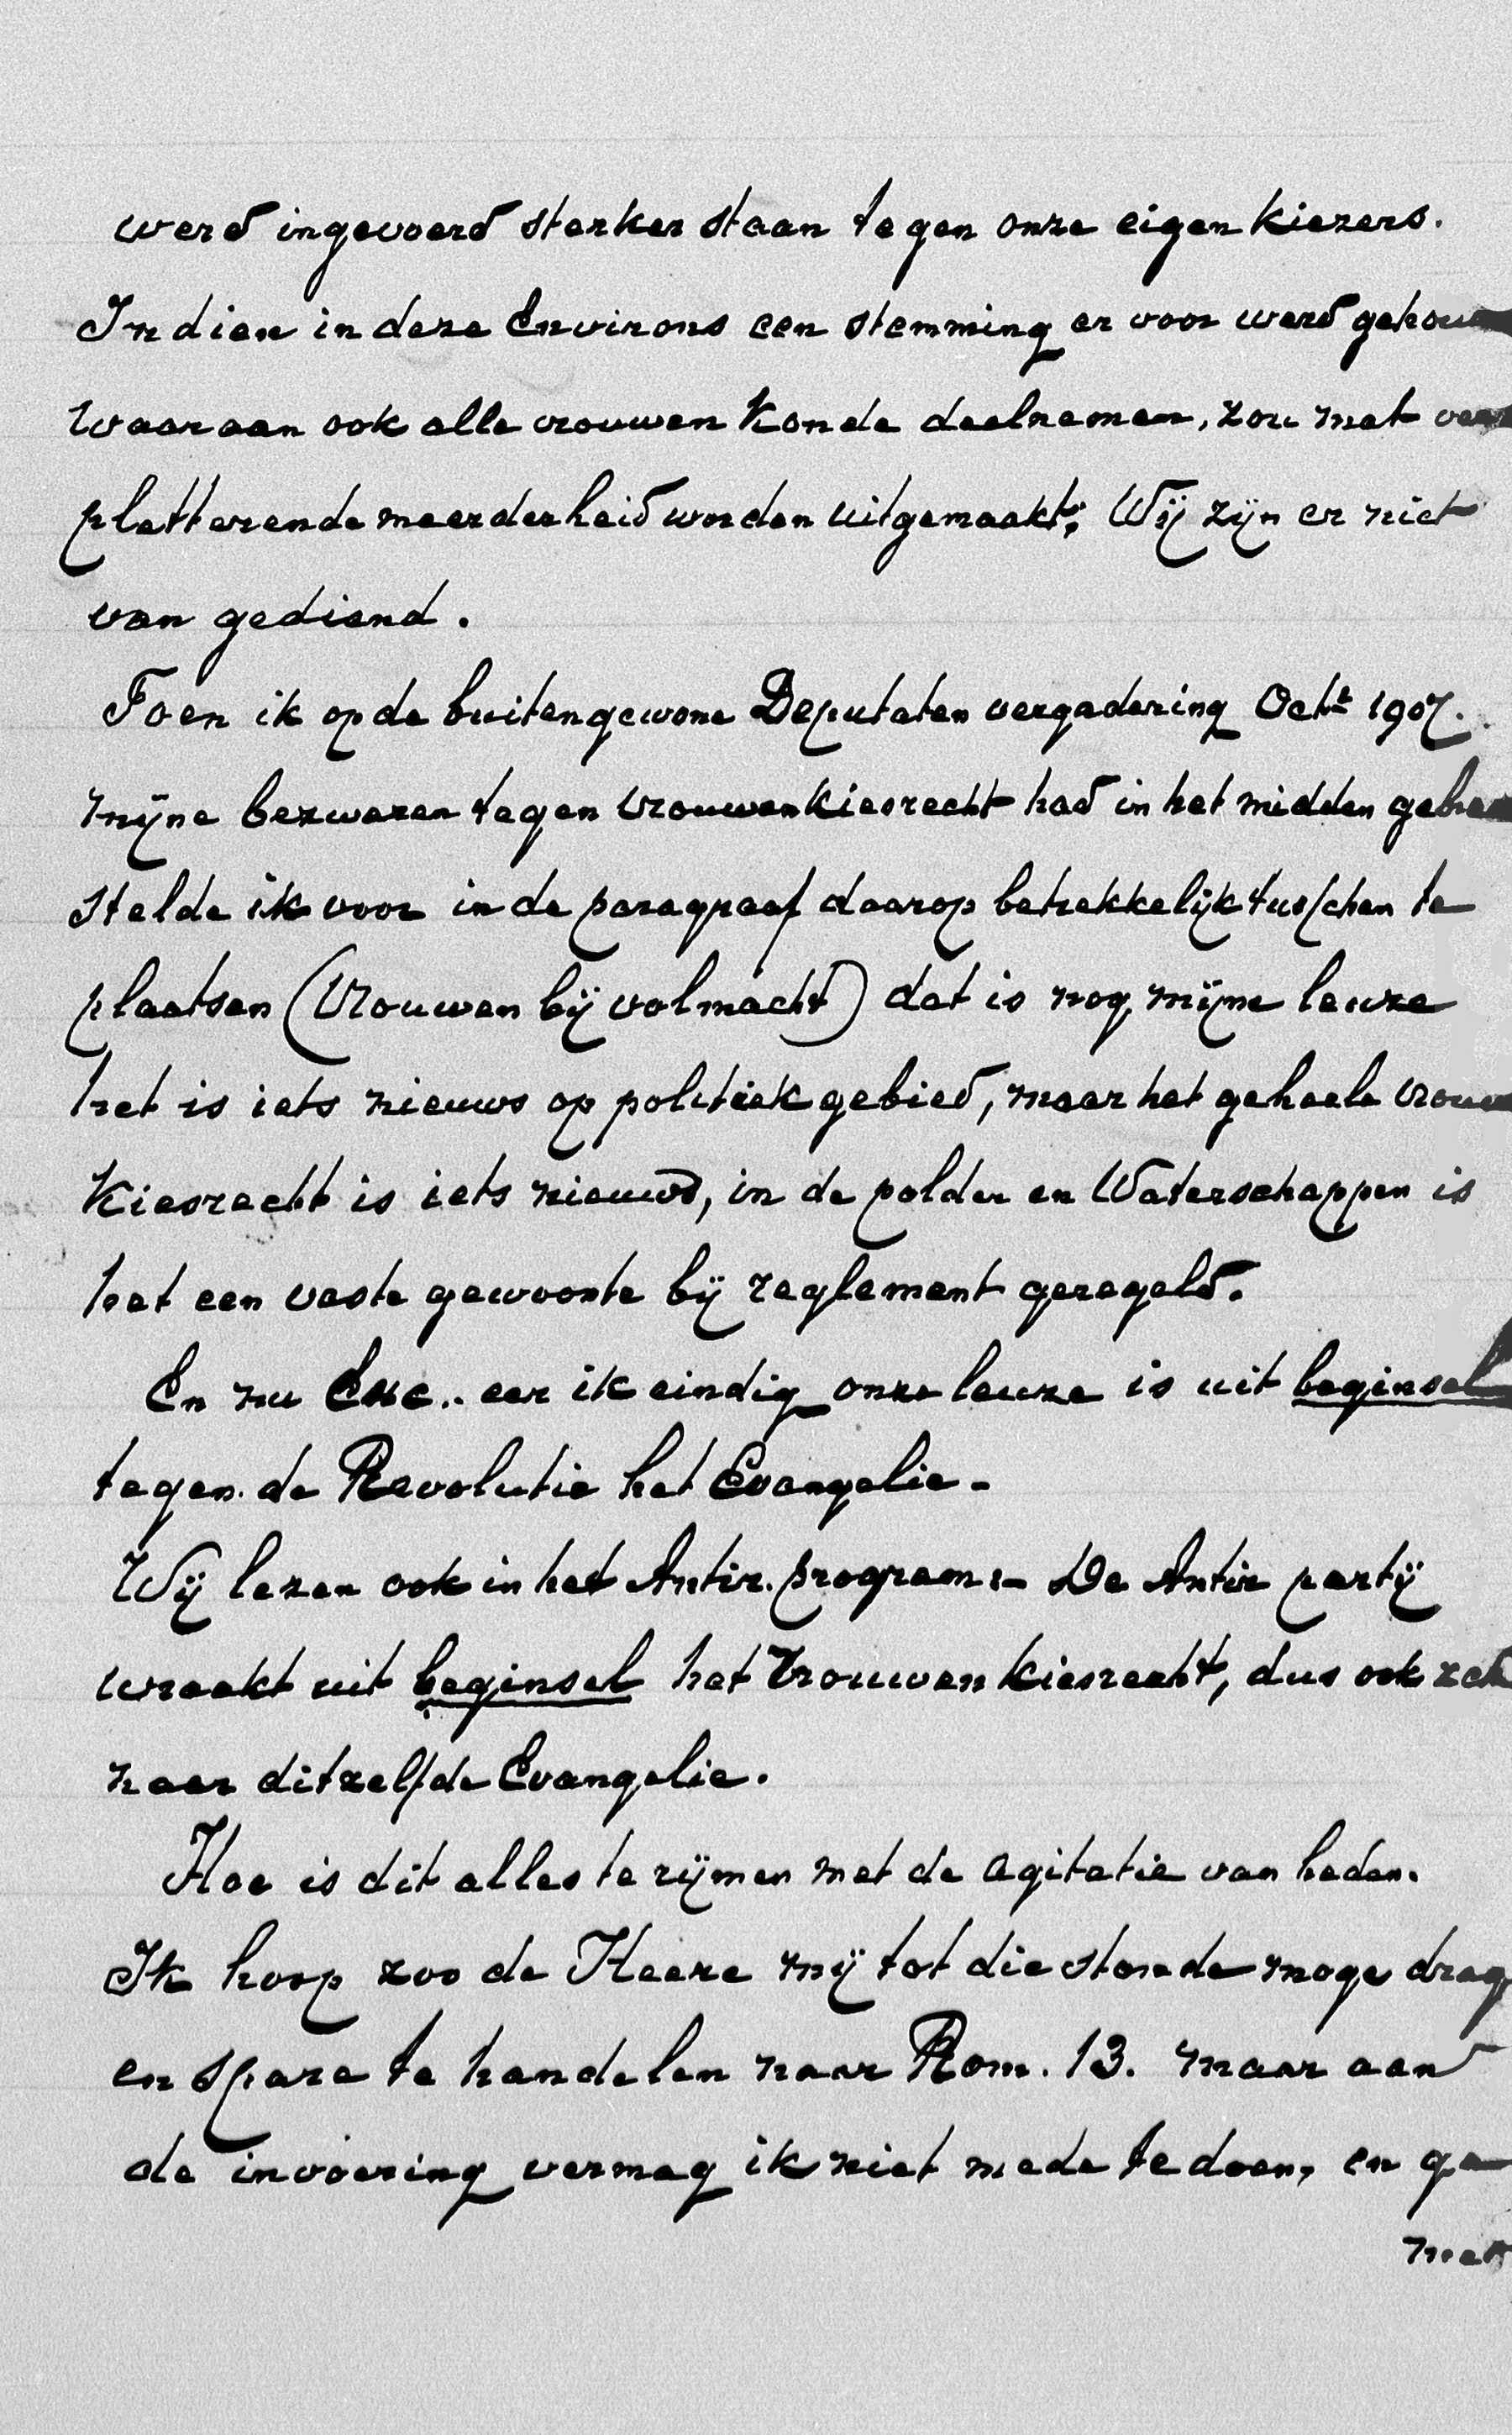 werd ingevoerd sterker staan tegen onze eigen kiezers.
Indien in deze Environs een stemming er voor werd gehou
waaraan ook alle vrouwen konde deelnemen, zou met ver
pletterende meerderheid worden uitgemaakt; Wij zijn er niet
van gediend.
Toen ik op de buitengewone Deputaten vergadering Octr 1907.
mijne bezwaren tegen Vrouwenkiesrecht had in het midden gebra
stelde ik voor in de paragraaf daarop betrekkelijk tusschen te
plaatsen (Vrouwen bij volmacht) dat is nog mijne leuze
het is iets nieuws op politiek gebied, maar het geheele vrouw
Kiesrecht is iets nieuws, in de polder en Waterschappen is
het een vaste gewoonte bij reglement geregeld.
En nu Exc.. eer ik eindig onze leuze is uit beginsel
tegen de Revolutie het Evangelie -
Wij lezen ook in het Antir. program:- De Antir partij
wraakt uit beginsel het Vrouwen kiesrecht, dus ook zek
naar ditzelfde Evangelie.
Hoe is dit alles te rijmen met de agitatie van heden.
Ik hoop zoo de Heere mij tot die stonde moge drag
en spare te handelen naar Rom. 13. maar aan
de invoering vermag ik niet mede te doen, en ga
met